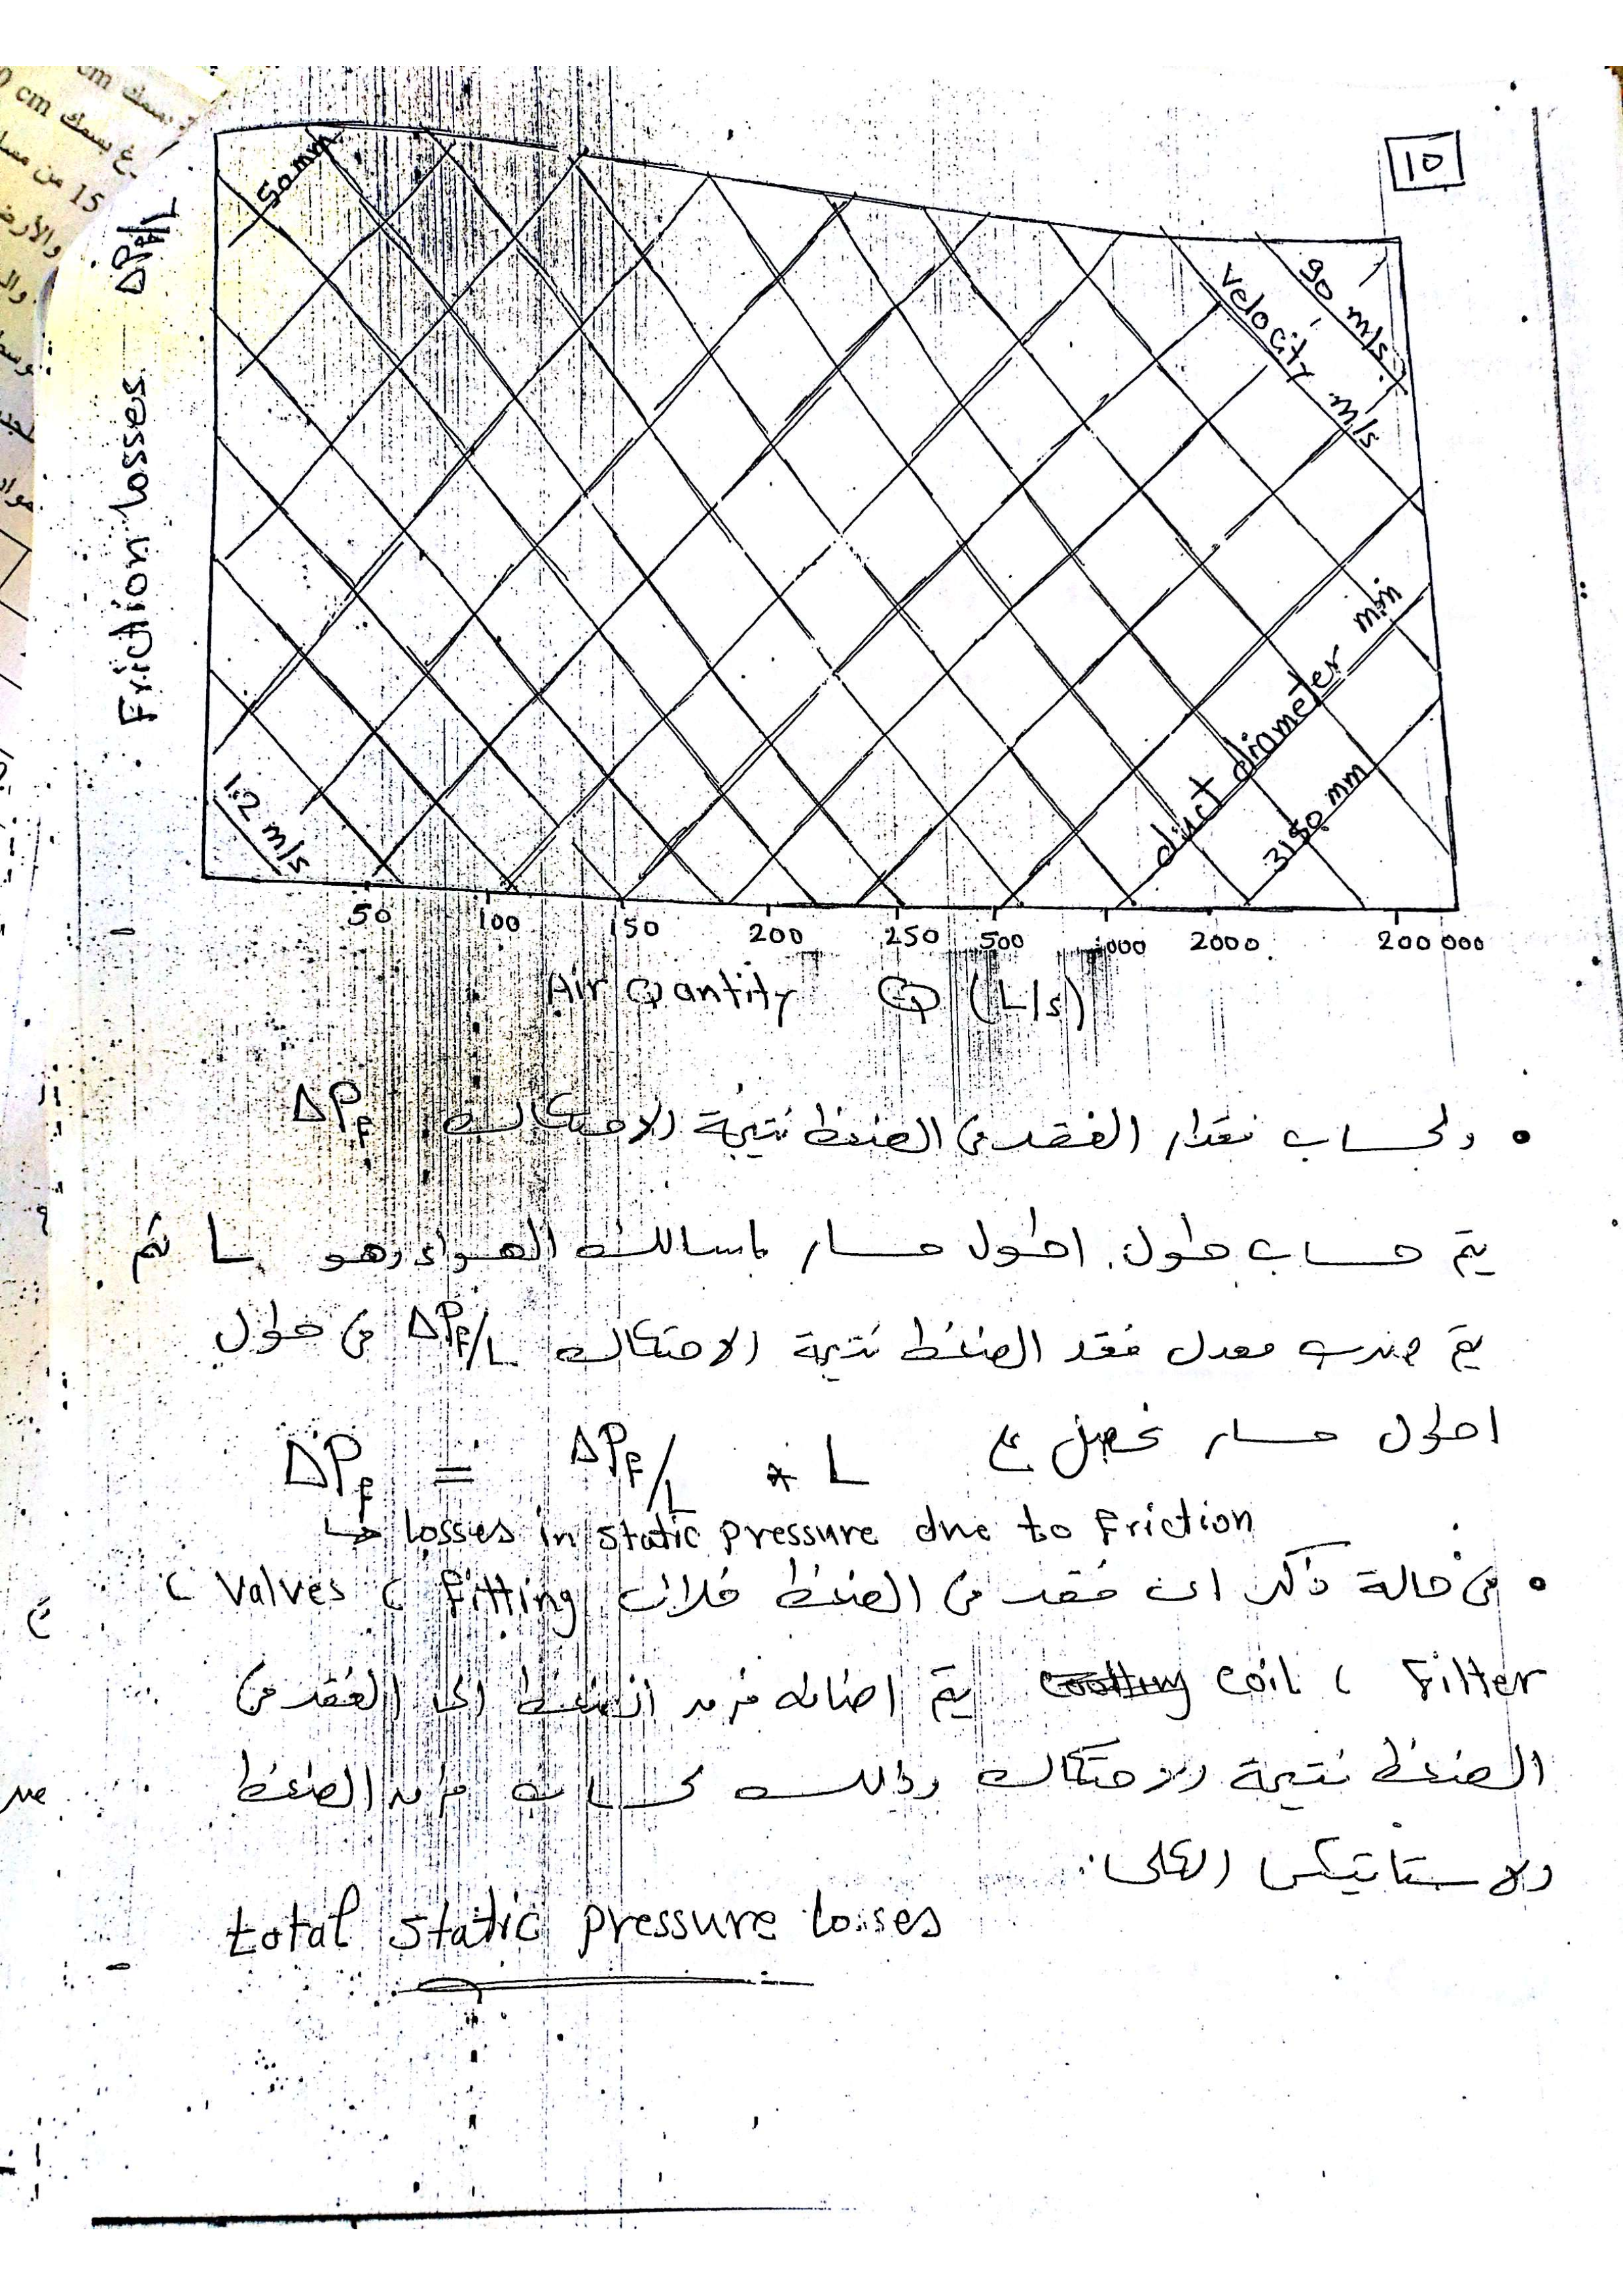 10
50 mm
90 m/s
velocity m/s
Friction losses
duct diameter mm
3150 mm
1.2 m/s
50 100 150 200 250 500 1000 2000 200 000
Air Qantity Q (L/s)
• ولحساب مقدار الفقد فى الضغط نتيجة الاحتكاك ΔPf
يتم حساب طول اطول مسار لمسالك الهواء وهو L ثم
يتم ضرب معدل فقد الضغط نتيجة الاحتكاك ΔPf/L فى طول
اطول مسار نحصل على
ΔPf = ΔPf/L * L
↳ losses in static pressure due to friction
• فى حالة ذكر ان فقد فى الضغط خلال fitting ، Valves ،
Filter ، coil يتم اضافة فرق الضغط الى الفقد فى
الضغط نتيجة الاحتكاك وذلك لحساب فرق الضغط
الاستاتيكى الكلى
total static pressure losses
15 من
والأرض